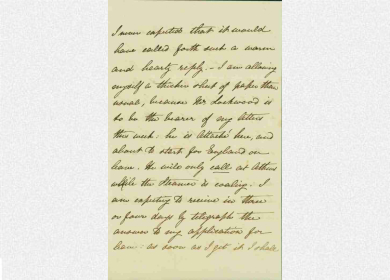 I never expected that it would
have called forth such a warm
and hearty reply. – I am allowing
myself a thicker sheet of paper than
usual, because Mr Lockwood is
to be the bearer of my letters
this week: he is Attaché here, and
about to start for England on
leave. He will only call at Athens
while the Steamer is coaling. I
am expecting to receive in three
or four days by telegraph the
answer to my application for
leave: as soon as I get it I shall